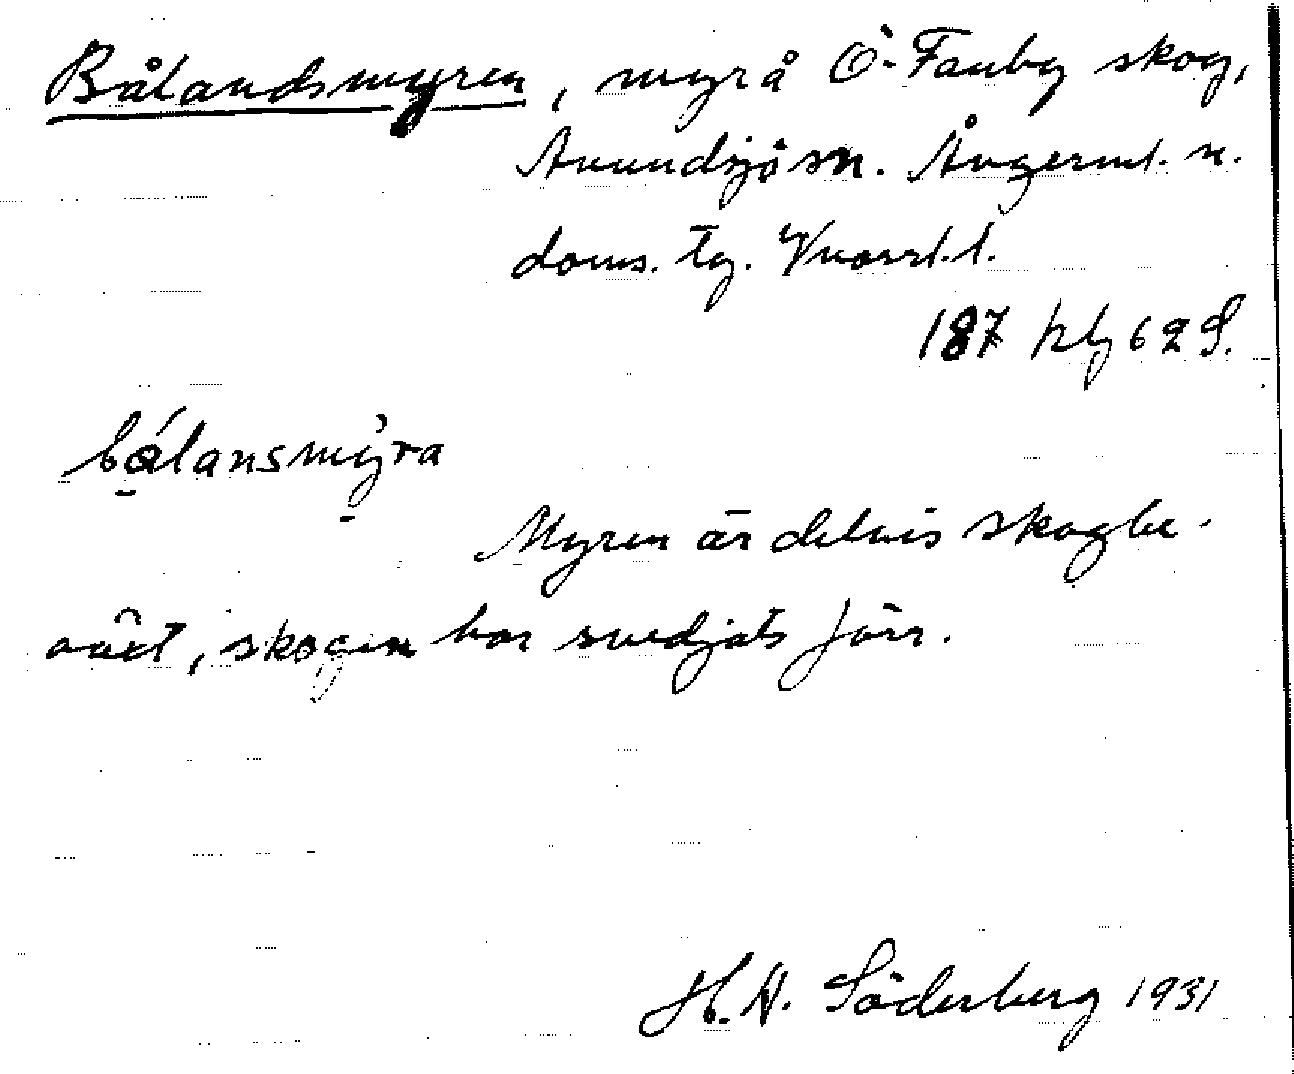 Bålandsmyren, myr å Ö. Tannby skog,
Anundsjö sn. Ångerml. n.
doms. tg. Vnorrl. l.
187 kbg 62 S.
bålansmyra
Myren är delvis skogbe-
växt, skogen har svedjats förr.
H. W. Söderberg 1931